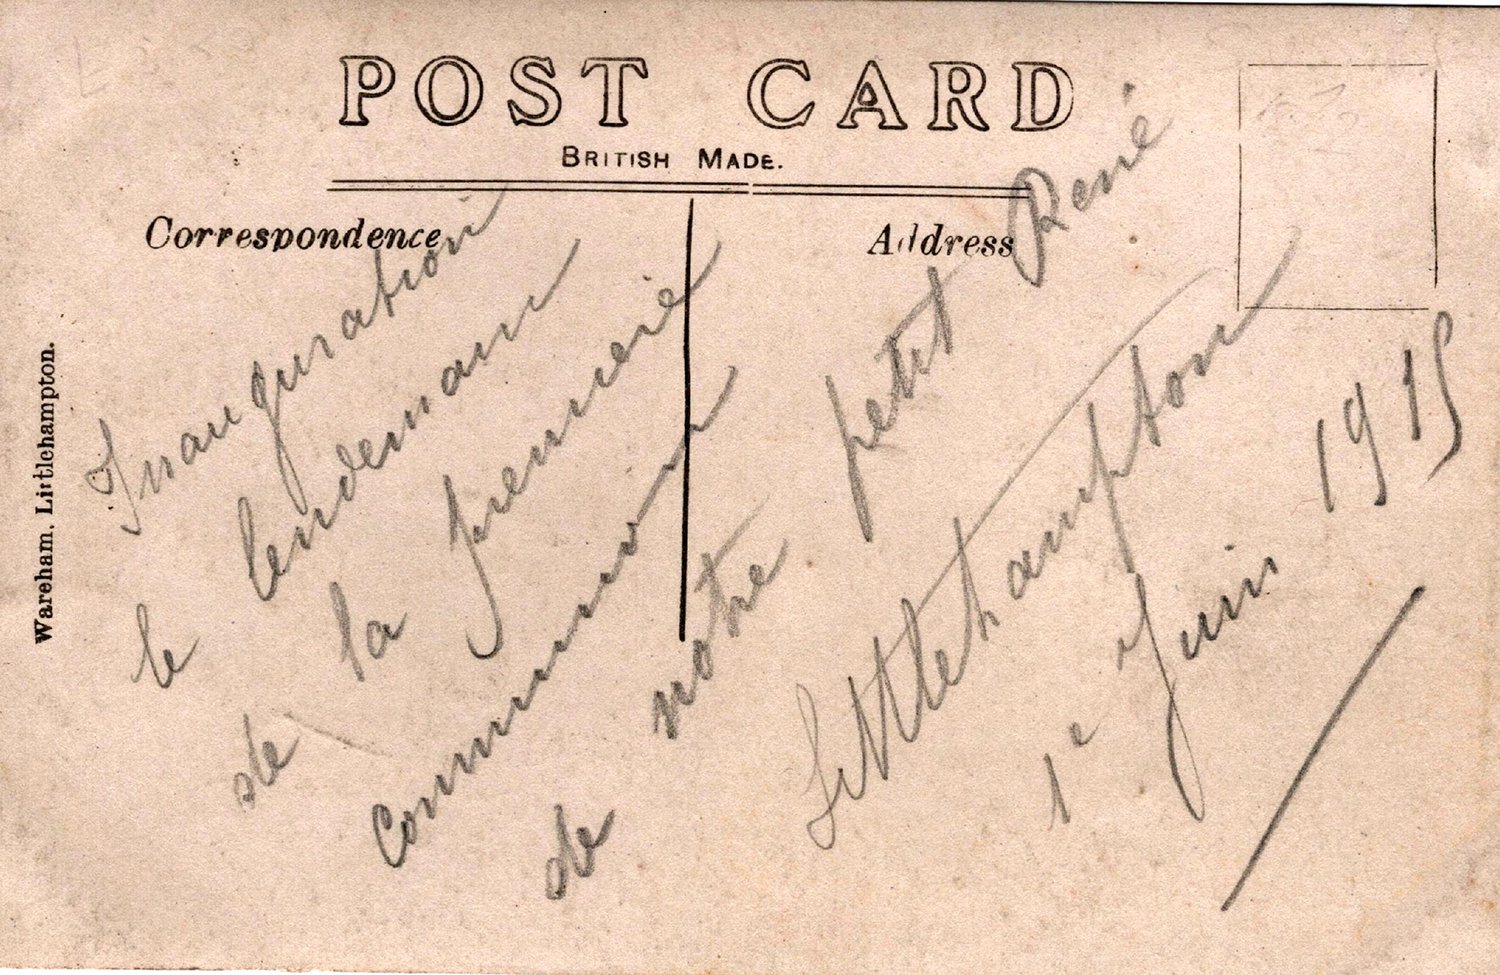 POST CARD
BRITISH MADE.
Correspondence
Address
Wareham, Littlehampton.
Inauguration
le lendemain
de la premiere
communion
de notre petit René
Littlehampton
1e Juin 1915